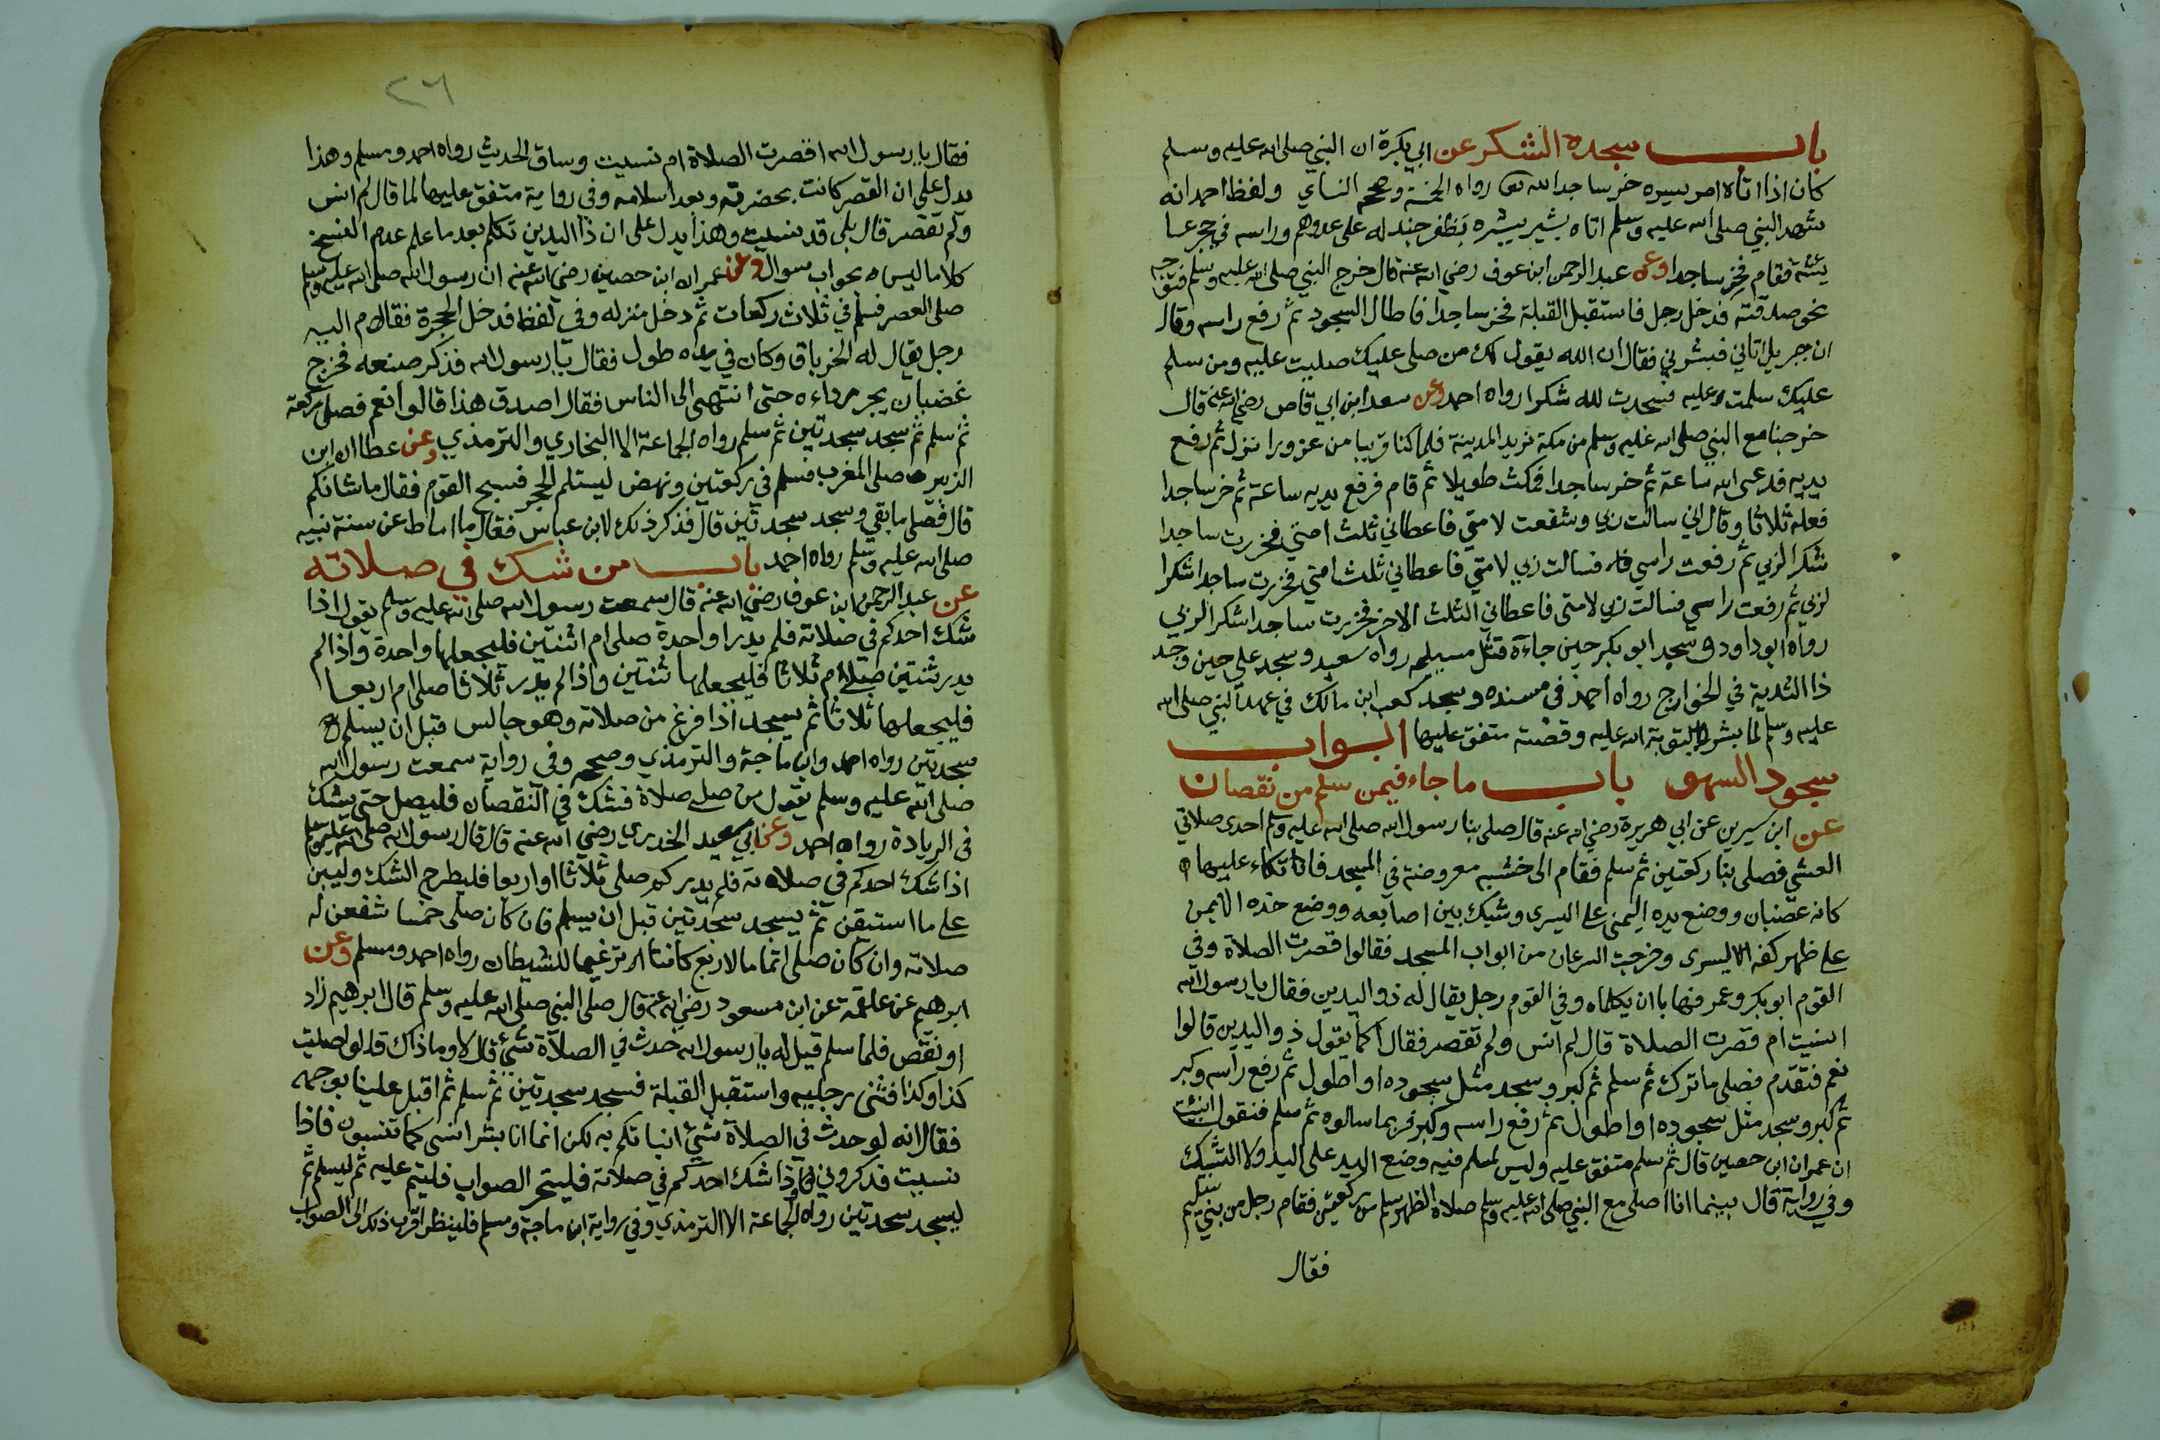 باب سجدة الشكر عن ابي بكرة ان النبي صلى الله عليه وسلم
كان اذا اتاه امر يسره خر ساجدا لله تعا رواه الخمسة وصححه النساي ولفظ احمد انه
شهد النبي صلى الله عليه وسلم اتاه بشير يبشره بظفر جند له على عدوهم وراسه في حجر عا
يشة فقام فخر ساجدا وعن عبد الرحمن ابن عوف رضي الله عنه قال خرج النبي صلى الله عليه وسلم فتوجه
نحو صدقته فدخل رجل فاستقبل القبلة فخر ساجدا فاطال السجود ثم رفع راسه وقال
ان جبريل اتاني فبشرني فقال ان الله يقول لك من صلى عليك صليت عليه ومن سلم
عليك سلمت عليه فسجدت لله شكرا رواه احمد وعن سعد ابن ابي قاص رضي الله عنه قال
خرجنا مع النبي صلى الله عليه وسلم من مكة نريد المدينة فلما كنا قريبا من عزورا نزل ثم رفع
يديه فدعى الله ساعة ثم خر ساجدا فمكث طويلا ثم قام فرفع يديه ساعة ثم خر ساجدا
فعله ثلاثا وقال اني سالت ربي وشفعت لامتي فاعطاني ثلث امتي فخررت ساجدا
شكرا لربي ثم رفعت راسي فسالت ربي لامتي فاعطاني ثلث امتي فخررت ساجدا شكرا
لربي ثم رفعت راسي فسالت ربي لامتي فاعطاني الثلث الاخر فخررت ساجدا شكرا لربي
رواه ابو داود وسجد ابو بكر حين جاءه قتل مسيلمه رواه سعيد وسجد علي حين وجد
ذا الثدية في الخوارج رواه احمد في مسنده وسجد كعب ابن مالك في عهد النبي صلى الله
عليه وسلم لما بشر بتوبة الله عليه وقصته متفق عليها ابواب
سجود السهو باب ما جاء فيمن سلم من نقصان
عن ابن سيرين عن ابي هريرة رضي الله عنه قال صلى بنا رسول الله صلى الله عليه وسلم احدى صلاتي
العشي فصلى بنا ركعتين ثم سلم فقام الى خشبه معروضة في المسجد فاتكاء عليها
كانه غضبان ووضع يده اليمنى على اليسرى وشبك بين اصابعه ووضع خده الايمن
على ظهر كفه اليسرى وخرجت السرعان من ابواب المسجد فقالوا قصرت الصلاة وفي
القوم ابو بكر وعمر فهابا ان يكلماه وفي القوم رجل يقال له ذو اليدين فقال يا رسول الله
انسيت ام قصرت الصلاة قال لم انس ولم تقصر فقال اكما يقول ذو اليدين قالوا
نعم فتقدم فصلى ما ترك ثم سلم ثم كبر وسجد مثل سجوده او اطول ثم رفع راسه وكبر
ثم كبر وسجد مثل سجوده او اطول ثم رفع راسه وكبر فربما سالوه ثم سلم فنقول انبئت
ان عمران ابن حصين قال ثم سلم متفق عليه وليس لمسلم فيه وضع اليد على اليد ولا التشبيك
وفي رواية قال بينما انا اصلي مع النبي صلى الله عليه وسلم صلاة الظهر سلم من ركعتين فقام رجل من بني سليم
فقال
٢٦
فقال يا رسول الله اقصرت الصلاة ام نسيت وساق الحديث رواه احمد ومسلم وهذا
يدل على ان القصر كانت بحضرته وبعد اسلامه وفي رواية متفق عليها لما قال لم انس
ولم تقصر قال بلى قد نسيت وهذا يدل على ان ذا اليدين تكلم بعد ما علم عدم النسخ
كلاما ليس بجواب سوال وعن عمران ابن حصين رضي الله عنه ان رسول الله صلى الله عليه وسلم
صلى العصر فسلم في ثلاث ركعات ثم دخل منزله وفي لفظ فدخل الحجرة فقام اليه
رجل يقال له الخرباق وكان في يده طول فقال يا رسول الله فذكر صنعه فخرج
غضبان يجر رداءه حتى انتهى الى الناس فقال اصدق هذا قالوا نعم فصلى ركعة
ثم سلم ثم سجد سجدتين ثم سلم رواه الجماعة الا البخاري والترمذي وعن عطا ان ابن
الزبير صلى المغرب فسلم في ركعتين ونهض ليستلم الحجر فسبح القوم فقال ما شانكم
قال فصلى ما بقي وسجد سجدتين قال فذكر ذلك لابن عباس فقال ما اماط عن سنة نبيه
صلى الله عليه وسلم رواه احمد باب من شك في صلاته
عن عبد الرحمن ابن عوف رضي الله عنه قال سمعت رسول الله صلى الله عليه وسلم يقول اذا
شك احدكم في صلاته فلم يدر اواحدة صلى ام اثنتين فليجعلها واحدة واذا لم
يدر ثنتين صلى ام ثلاثا فليجعلها ثنتين واذا لم يدر ثلاثا صلى ام اربعا
فليجعلها ثلاثا ثم يسجد اذا فرغ من صلاته وهو جالس قبل ان يسلم
سجدتين رواه احمد وابن ماجة والترمذي وصححه وفي رواية سمعت رسول الله
صلى الله عليه وسلم يقول من صلى صلاة فشك في النقصان فليصل حتى يشك
في الزيادة رواه احمد وعن ابي سعيد الخدري رضي الله عنه قال قال رسول الله صلى الله عليه وسلم
اذا شك احدكم في صلاته فلم يدر كم صلى ثلاثا او اربعا فليطرح الشك وليبن
على ما استيقن ثم يسجد سجدتين قبل ان يسلم فان كان صلى خمسا شفعن له
صلاته وان كان صلى اتماما لاربع كانتا ترغيما للشيطان رواه احمد ومسلم وعن
ابرهيم عن علقمة عن ابن مسعود رضي الله عنه قال صلى النبي صلى الله عليه وسلم قال ابرهيم زاد
او نقص فلما سلم قيل له يا رسول الله حدث في الصلاة شيئ قال لا وما ذاك قالوا صليت
كذا وكذا فثنى رجليه واستقبل القبلة فسجد سجدتين ثم سلم ثم اقبل علينا بوجهه
فقال انه لو حدث في الصلاة شيئ انباتكم به لكن انما انا بشر انسى كما تنسون فاذا
نسيت فذكروني واذا شك احدكم في صلاته فليتحر الصواب فليتم عليه ثم ليسلم ثم
ليسجد سجدتين رواه الجماعة الا الترمذي وفي رواية ابن ماجة ومسلم فلينظر اقرب ذلك الى الصواب